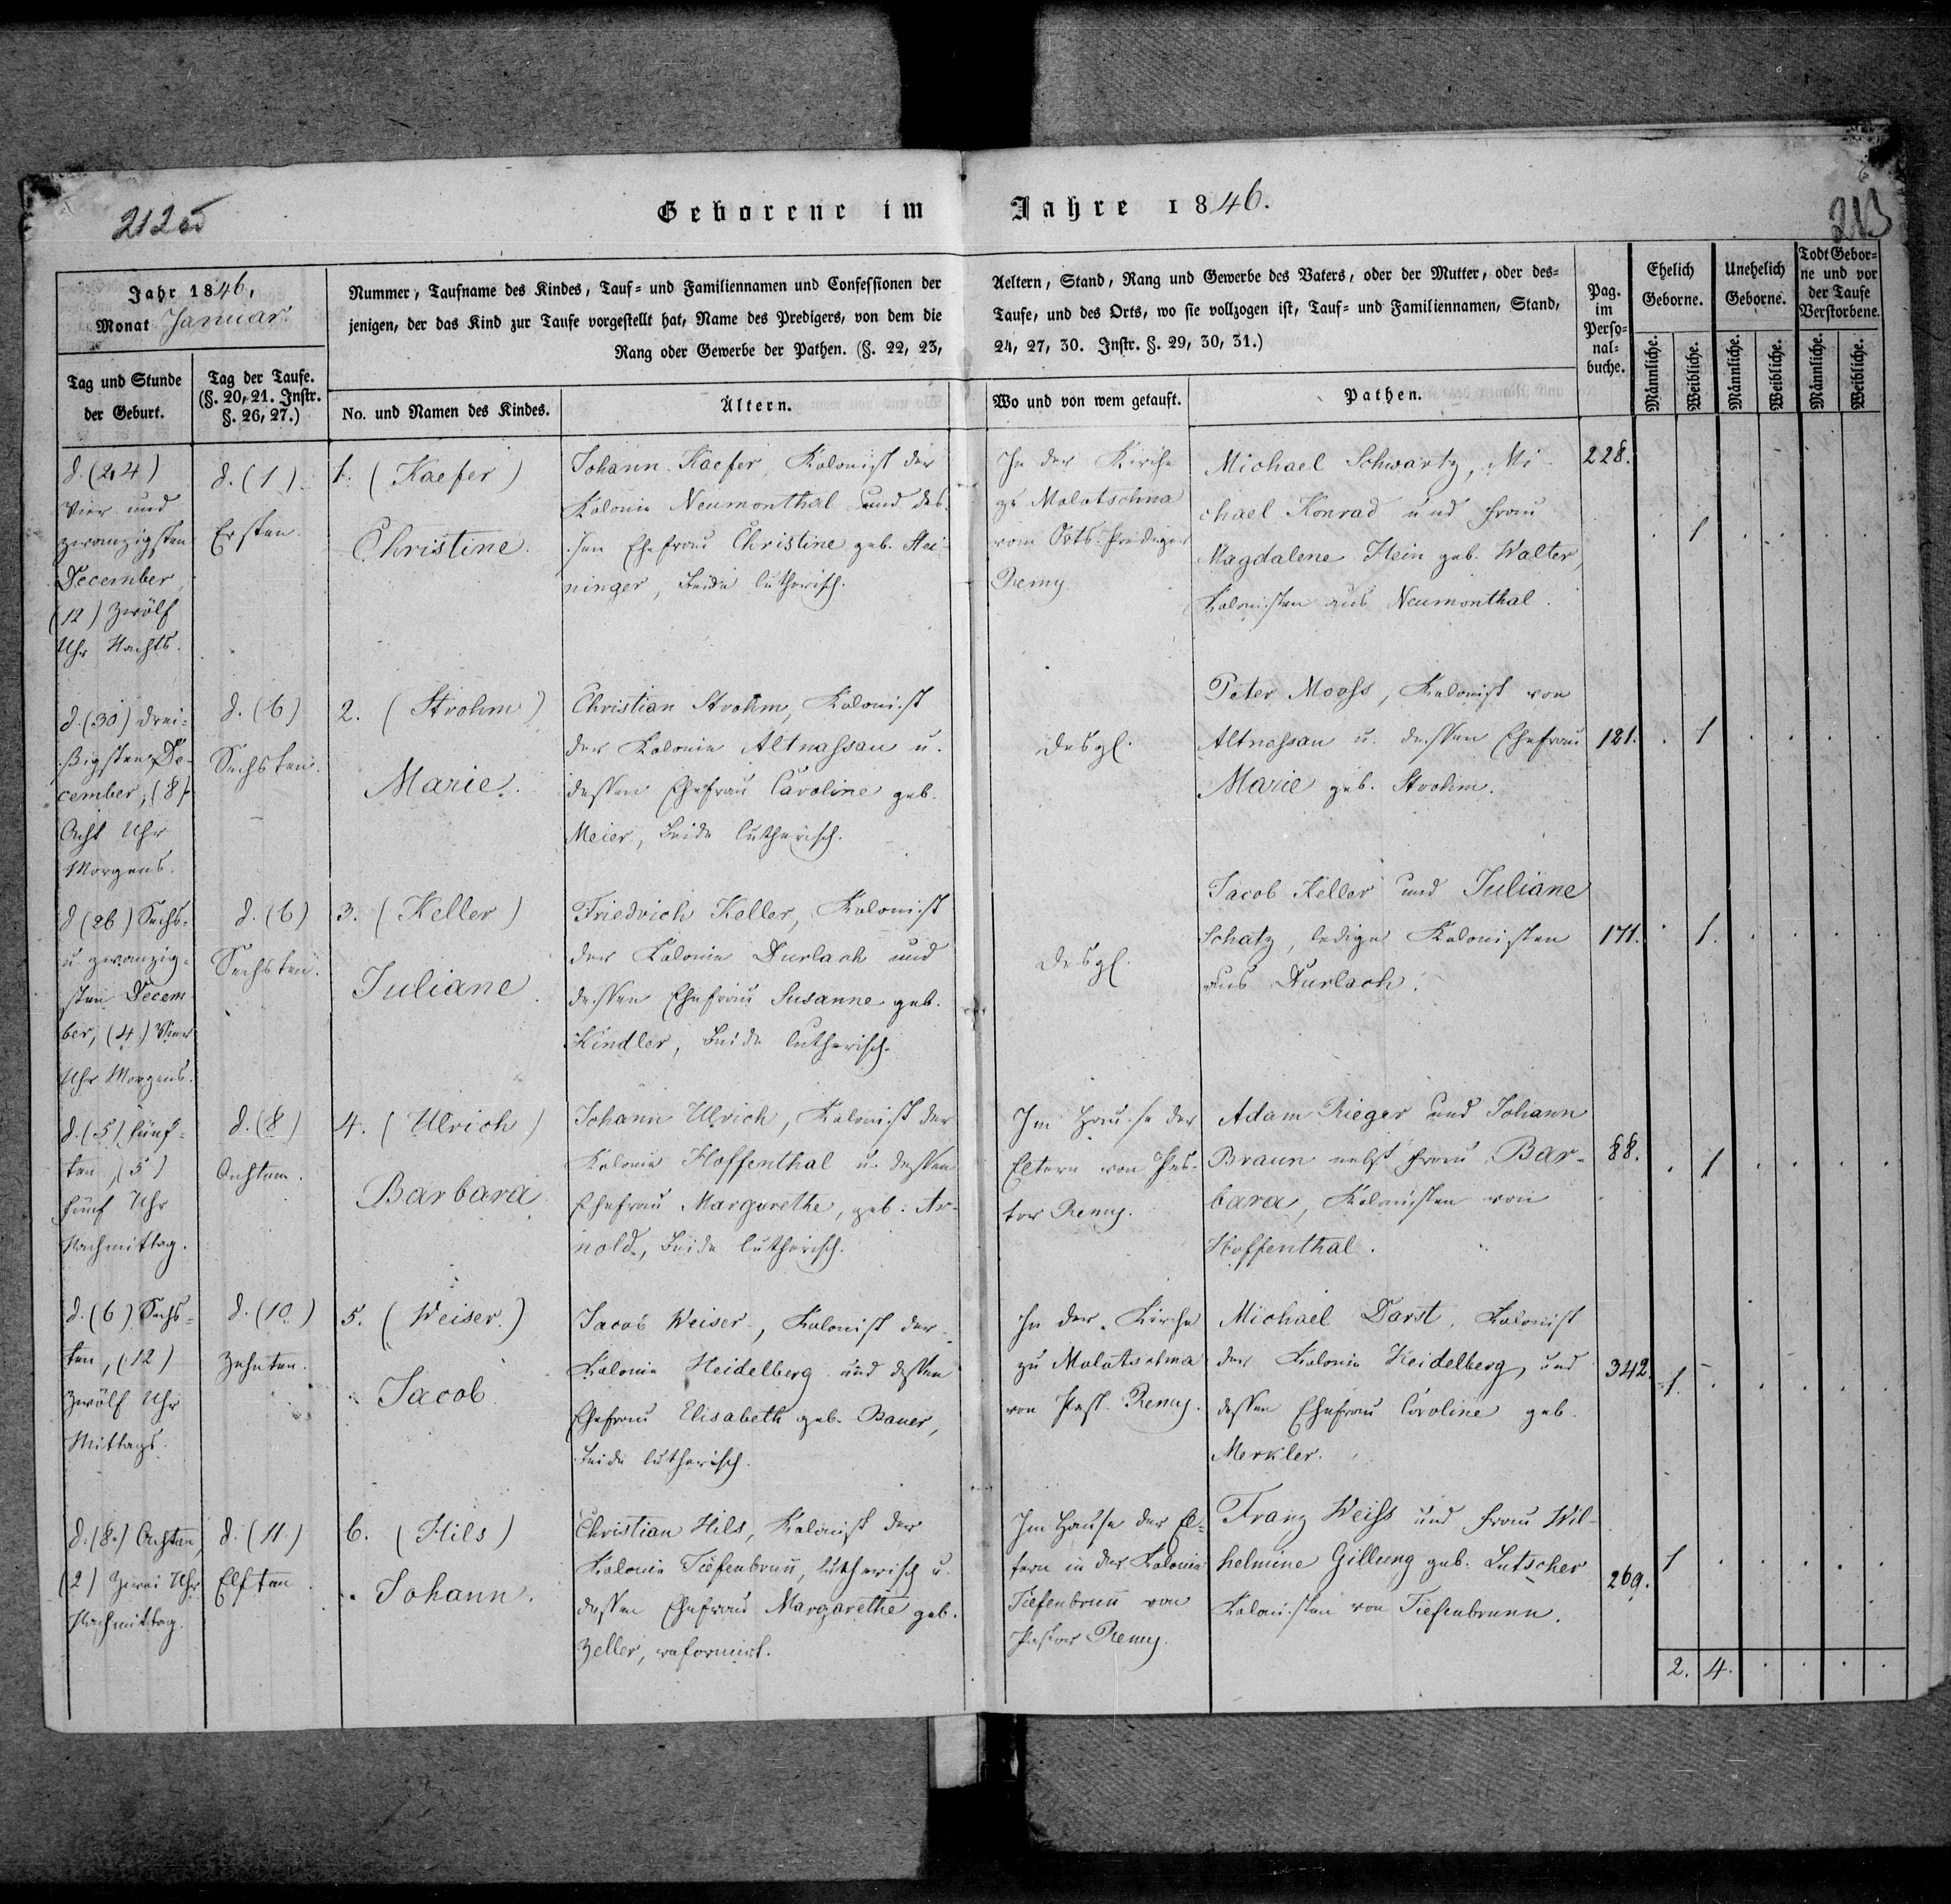 212
Geborene im Jahre 1846.
213
Jahr 1846,
Monat Januar.
Tag und Stunde
der Geburt.
Tag der Taufe.
(§. 20, 21. Instr.
§. 26, 27.)
Nummer, Taufname des Kindes, Tauf- und Familiennamen und Confessionen der
jenigen, der das Kind zur Taufe vorgestellt hat, Name des Predigers, von dem die
Rang oder Gewerbe der Pathen. (§. 22, 23,
No. und Namen des Kindes.
Ältern.
Aeltern, Stand, Rang und Gewerbe des Vaters, oder der Mutter, oder des-
Taufe, und des Orts, wo sie vollzogen ist, Tauf- und Familiennamen, Stand,
24, 27, 30. Instr. §. 29, 30, 31.)
Wo und von wem getauft.
Pathen.
Pag.
im
Perso-
nal-
buche.
Ehelich
Geborne.
Unehelich
Geborne.
Todt Gebor-
ne und vor
der Taufe
Verstorbene.
Männliche.
Weibliche.
Männliche.
Weibliche.
Männliche.
Weibliche.
d. (24)
Vier und
zwanzigsten
December
(12) Zwölf
Uhr Nachts.
d. (1).
Ersten.
1. (Kaefer)
Christine.
Johann Kaefer, Kolonist der
Kolonie Neumonthal und des-
sen Ehefrau Christine geb. Hei-
ninger, beide lutherisch.
In der Kirche
zu Molotschna
vom Orts-Prediger
Remy.
Michael Schwartz, Mi-
chael Konrad und Frau
Magdalene Hein geb. Walter,
Kolonisten aus Neumonthal.
228.
1
d. (30) Drei-
ßigsten De-
cember, (8)
Acht Uhr
Morgens.
d. (6)
Sechsten.
2. (Strohm)
Marie.
Christian Strohm, Kolonist
der Kolonie Altnassau u.
dessen Ehefrau Caroline geb.
Meier, beide lutherisch.
desgl.
Peter Moohs, Kolonist von
Altnassau u. dessen Ehefrau
Marie geb. Strohm.
121.
1
d. (26) Sechs-
u. zwanzig-
sten Decem
ber, (4) Vier
Uhr Morgens.
d. (6)
Sechsten.
3. (Keller)
Juliane.
Friedrich Keller, Kolonist
der Kolonie Durlach und
dessen Ehefrau Susanne geb.
Kindler, beide lutherisch.
desgl.
Jacob Keller und Juliane
Schatz, ledige Kolonisten
aus Durlach.
171.
1.
d. (5) Fünf-
ten, (5)
Fünf Uhr
Nachmittag.
d. (8)
Achten.
4. (Ulrich)
Barbara.
Johann Ulrich, Kolonist der
Kolonie Hoffenthal u. dessen
Ehefrau Margarethe, geb. Ar-
nold, beide lutherisch.
Im Hause der
Eltern von Pas-
tor Remy.
Adam Rieger und Johann
Braun nebst Frau Bar-
bara, Kolonisten von
Hoffenthal.
88.
1
d. (6) Sechs-
ten, (12)
Zwölf Uhr
Mittags.
d. (10)
Zehnten.
5. (Weiser.)
Jacob
Jacob Weiser, Kolonist der
Kolonie Heidelberg und dessen
Ehefrau Elisabeth geb. Bauer,
beide lutherisch.
In der Kirche
zu Molotschna
von Past. Remy.
Michael Darst, Kolonist
der Kolonie Heidelberg, und
dessen Ehefrau Caroline geb.
Merkler.
342.
1.
d. (8.) Achten,
(2) Zwei Uhr
Nachmittag.
d. (11)
Elften.
6. (Hils)
Johann.
Christian Hils, Kolonist der
Kolonie Tiefenbrun, lutherisch u.
dessen Ehefrau Margarethe geb.
Zeller, reformirt.
Im Hause der El-
tern in der Kolonie
Tiefenbrun von
Pastor Remy.
Franz Weiss und Frau Wil-
helmine Gillung geb. Lutscher
Kolonisten von Tiefenbrunn.
269.
1
2. 4.